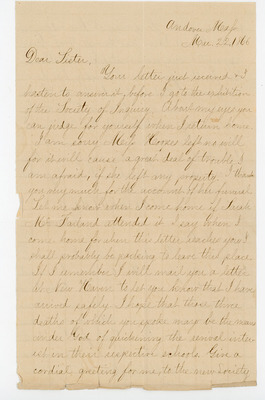 Andover Mass
Dec. 22, 1866
Dear Sister,
Your letter just received & I
hasten to answer it, before I go to the exhibition
of the Society of Inquiry. About my eyes you
can judge for yourself when I return home.
I am sorry Miss left no will
for it will cause a great deal of trouble, I
am afraid, if she left any property. I thank
you very much for the account of the funeral
Let me know when I come home if Uncle
attended it I say when I
come home for when this letter reaches you I
shall probably be packing to leave this place.
If I remember I will mail you a letter
in New Haven to let you know that I have
arrived safely. I hope that those three
deaths of which you spoke may be the means
under God of quickening the revival inter-
est in their respective schools. Give a
cordial greeting for me, to the new Society